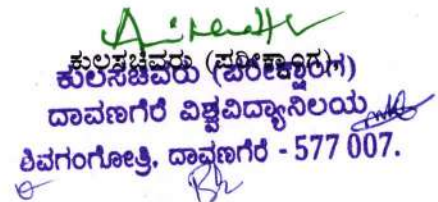 ಕುಲಸಚಿವರು (ಪರೀಕ್ಷಾಂಗ)
ಕುಲಸಚಿವರು (ಪರೀಕ್ಷಾಂಗ)
ದಾವಣಗೆರೆ ವಿಶ್ವವಿದ್ಯಾನಿಲಯ
ಶಿವಗಂಗೋತ್ರಿ, ದಾವಣಗೆರೆ - 577 007.